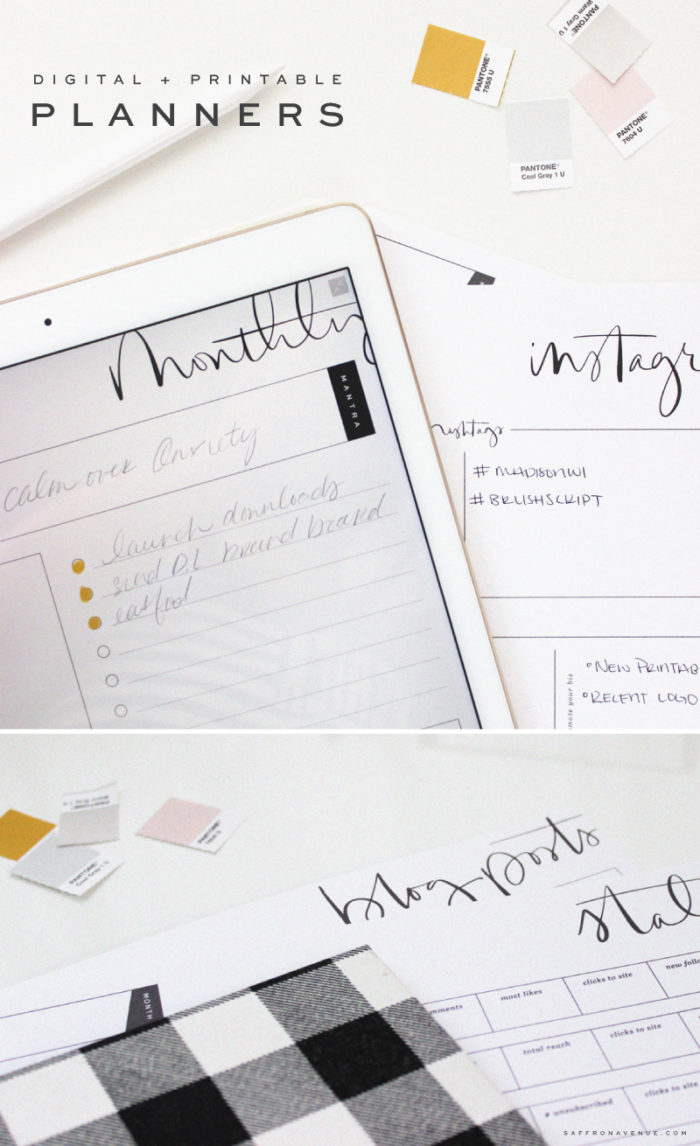 DIGITAL + PRINTABLE
PLANNERS
PANTONE®
7555 U
PANTONE®
Warm Gray 1 U
PANTONE®
Cool Gray 1 U
PANTONE®
7604 U
monthly
MANTRA
calm over anxiety
launch downloads
send P.L brand board
eat food
instagr
hashtags
#MADISONWI
#BRUSHSCRIPT
mote your biz
°NEW PRINTAB
°RECENT LOGO
PANTONE®
Cool Gray 1 U
PANTONE®
blog posts
stal
MONTH
mments
most likes
clicks to site
new follo
total reach
clicks to site
# unsubscribed
clicks to site
SAFFRONAVENUE.COM